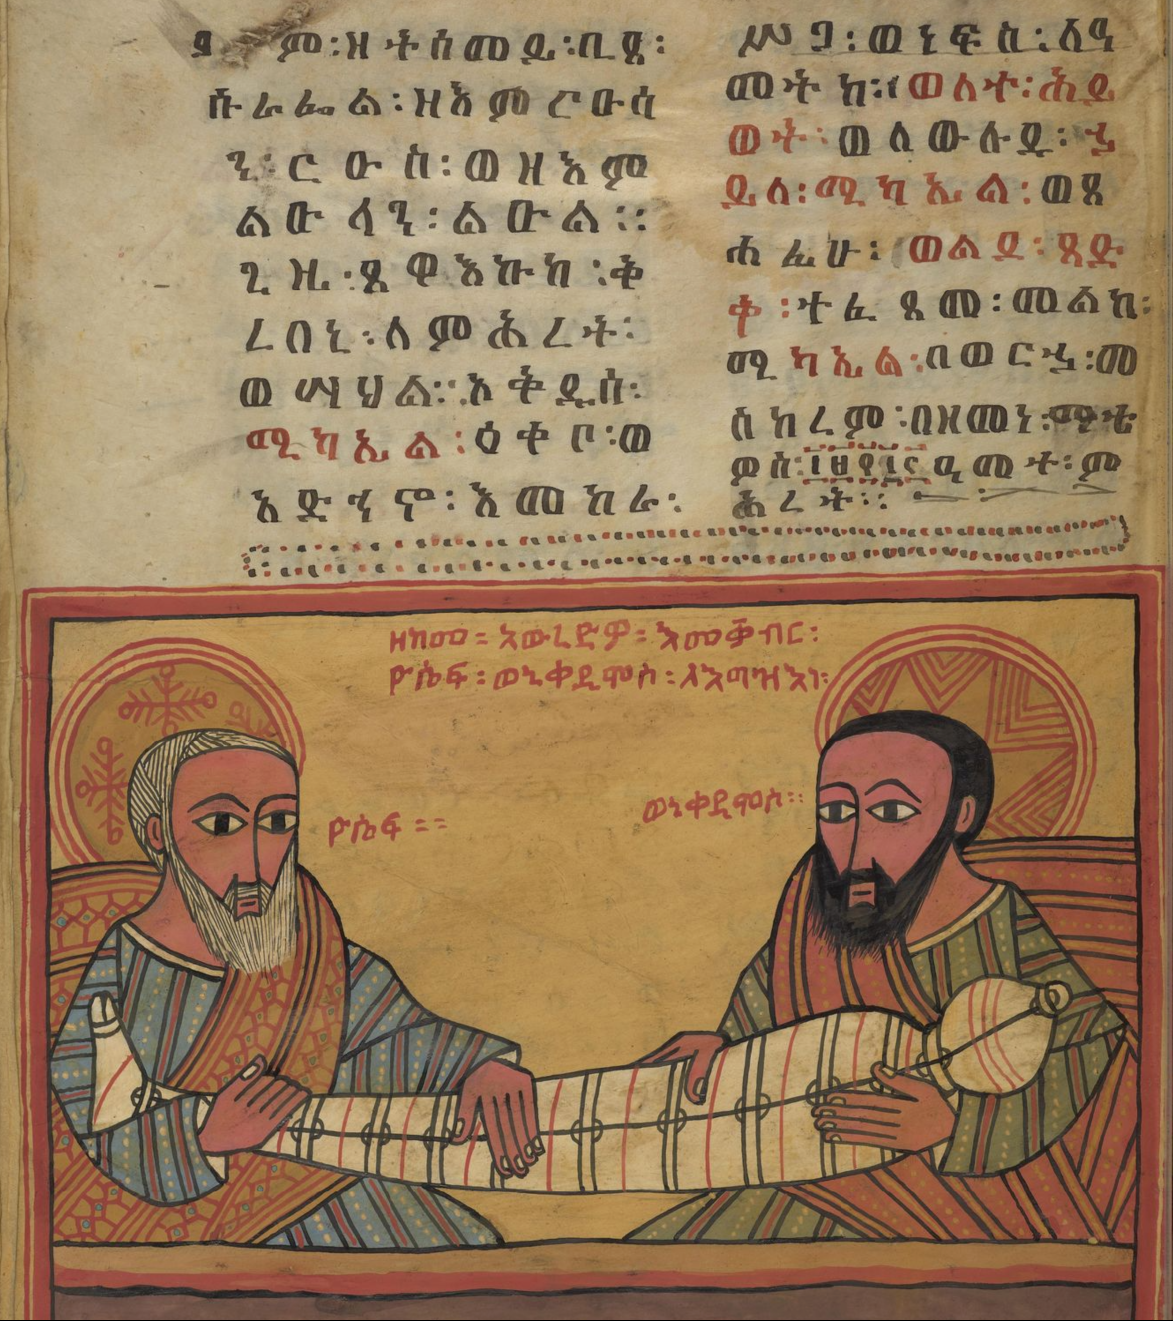 ም፡ዘተሰመይ፡በጼ፡
ሱራፌል፡ዘእምሮዑሳ
ን፡ርዑስ፡ወዘእም
ልዑላን፡ልዑል፡፡
ጊዜ፡ጼዋእኩከ፡ቅ
ረበኒ፡ለምሕረት፡
ወሣህል፡፡ኦቅዱስ፡
ሚካኤል፡ዕቀቦ፡ወ
አድኅኖ፡እመከራ፡
ሥጋ፡ወነፍስ፡ለዓ
መትከ፡ወለተ፡ሕይ
ወት፡ወለውሉዳ፡ኃ
ይለ፡ሚካኤል፡ወጸ
ሐፊሁ፡ወልደ፡ጻድ
ቅ፡ተፈጸመ፡መልከ፡
ሚካኤል፡በወርኃ፡መ
ስከረም፡በዘመነ፡
ዮስ፡ዓመት፡ም
ሕረት፡፡
ዘከመ፡አውረድዎ፡እመቅብር፡
ዮሴፍ፡ወኒቆዲሞስ፡ለእግዝእነ፡
ዮሴፍ፡፡
ወኒቆዲሞስ፡፡